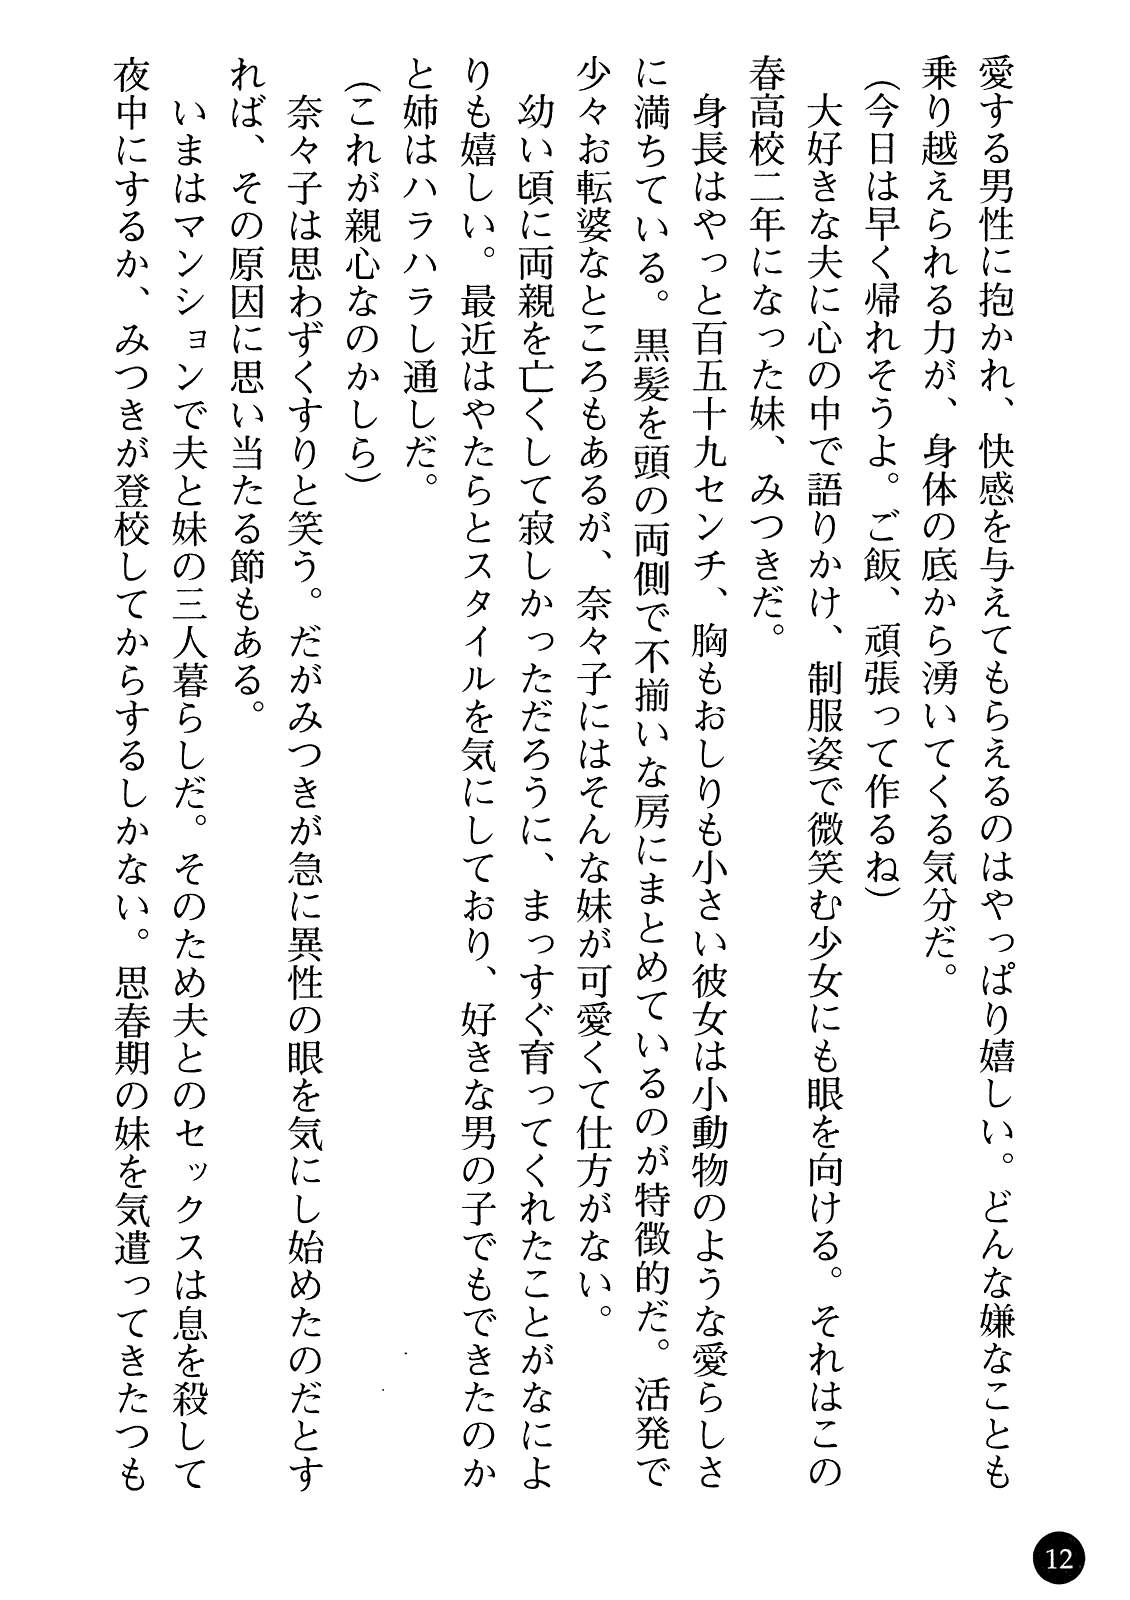 愛する男性に抱かれ、快感を与えてもらえるのはやっぱり嬉しい。どんな嫌なことも
乗り越えられる力が、身体の底から湧いてくる気分だ。
（今日は早く帰れそうよ。ご飯、頑張って作るね）
大好きな夫に心の中で語りかけ、制服姿で微笑む少女にも眼を向ける。それはこの
春高校二年になった妹、みつきだ。
身長はやっと百五十九センチ、胸もおしりも小さい彼女は小動物のような愛らしさ
に満ちている。黒髪を頭の両側で不揃いな房にまとめているのが特徴的だ。活発で
少々お転婆なところもあるが、奈々子にはそんな妹が可愛くて仕方がない。
幼い頃に両親を亡くして寂しかっただろうに、まっすぐ育ってくれたことがなによ
りも嬉しい。最近はやたらとスタイルを気にしており、好きな男の子でもできたのか
と姉はハラハラし通しだ。
（これが親心なのかしら）
奈々子は思わずくすりと笑う。だがみつきが急に異性の眼を気にし始めたのだとす
れば、その原因に思い当たる節もある。
いまはマンションで夫と妹の三人暮らしだ。そのため夫とのセックスは息を殺して
夜中にするか、みつきが登校してからするしかない。思春期の妹を気遣ってきたつも
12